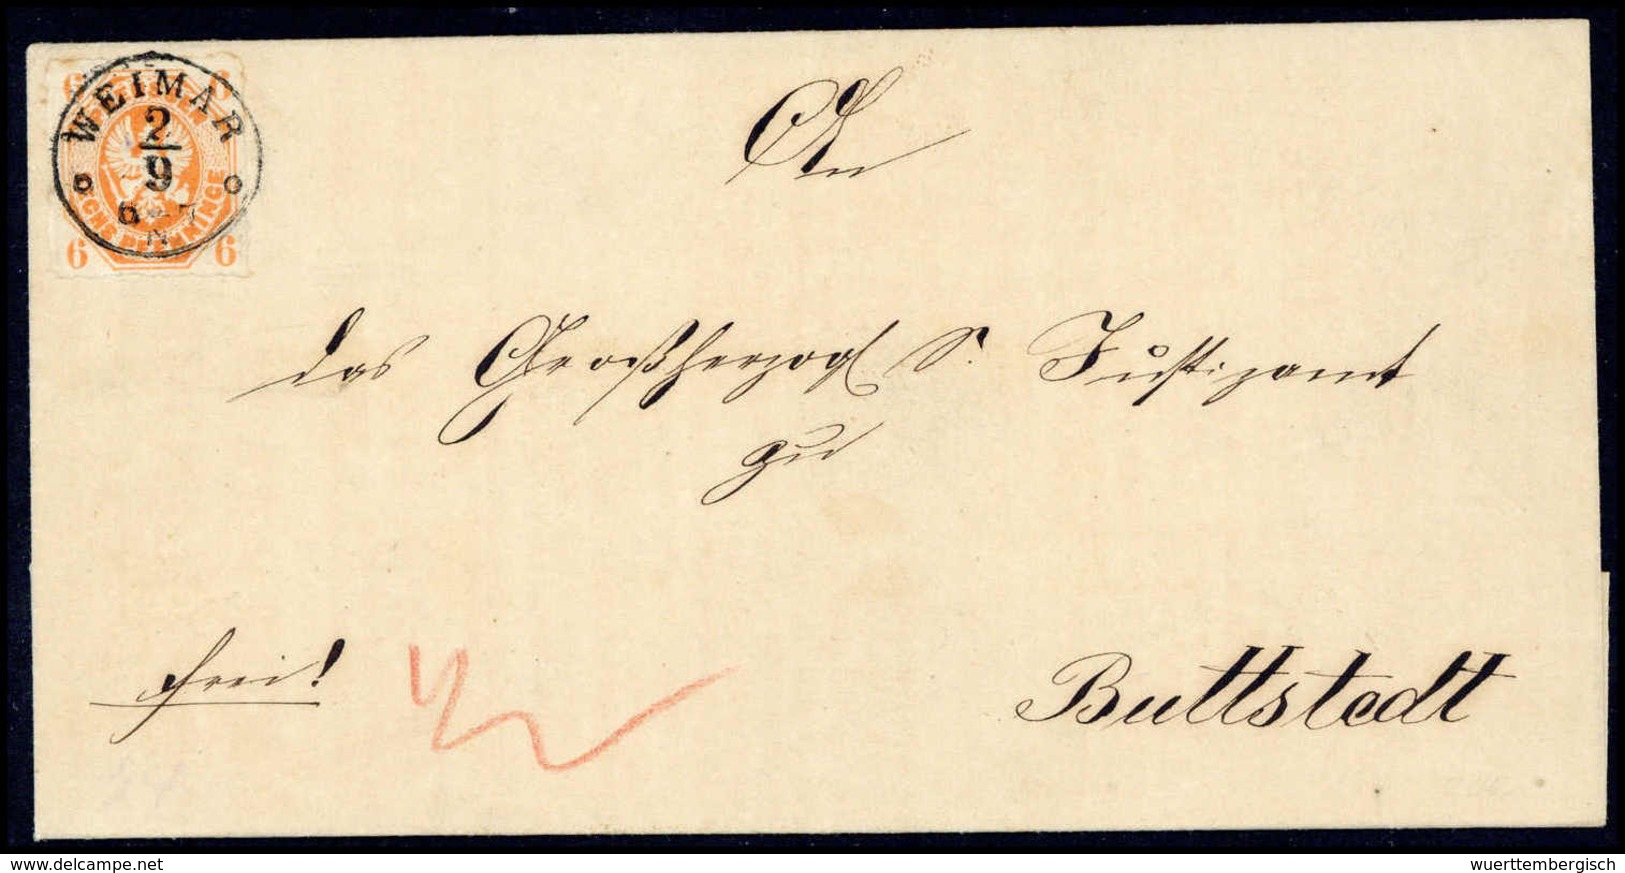 WEIMAR
2/9
6-7
N
6 6
SECHS PFENNINGE
6 6
An
das Großherzogl S. Justizamt
zu
frei!
Buttstedt
delcampe.net
wuerttembergisch